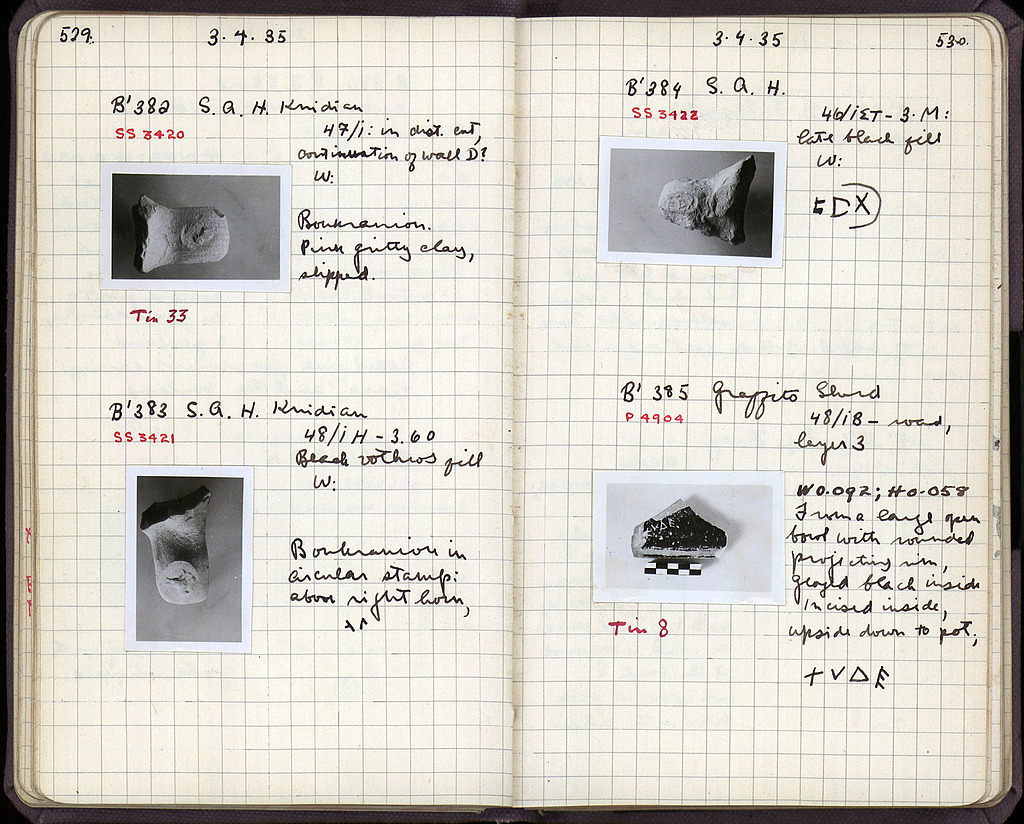 529.
3. 4. 35
B' 382 S. A. H. Knidian
SS 3420
47/i: in dist. cut,
continuation of wall D?
W:
Boukranion.
Pink gritty clay,
slipped.
Tin 33
B' 383 S. A. H. Knidian
SS 3421
48/i H - 3.60
Black vothros fill
W:
Boukranion in
circular stamp:
above right horn,
3. 4. 35
530.
B' 384 S. A. H.
SS 3422
46/iΣT - 3. M:
late black fill
W:
B' 385 Graffito Sherd
P 4904
48/iB - road,
layer 3
W 0.092; H 0.058
From a large open
bowl with rounded
projecting rim,
glazed black inside
Incised inside,
upside down to pot;
Tin 8
+ V Δ E